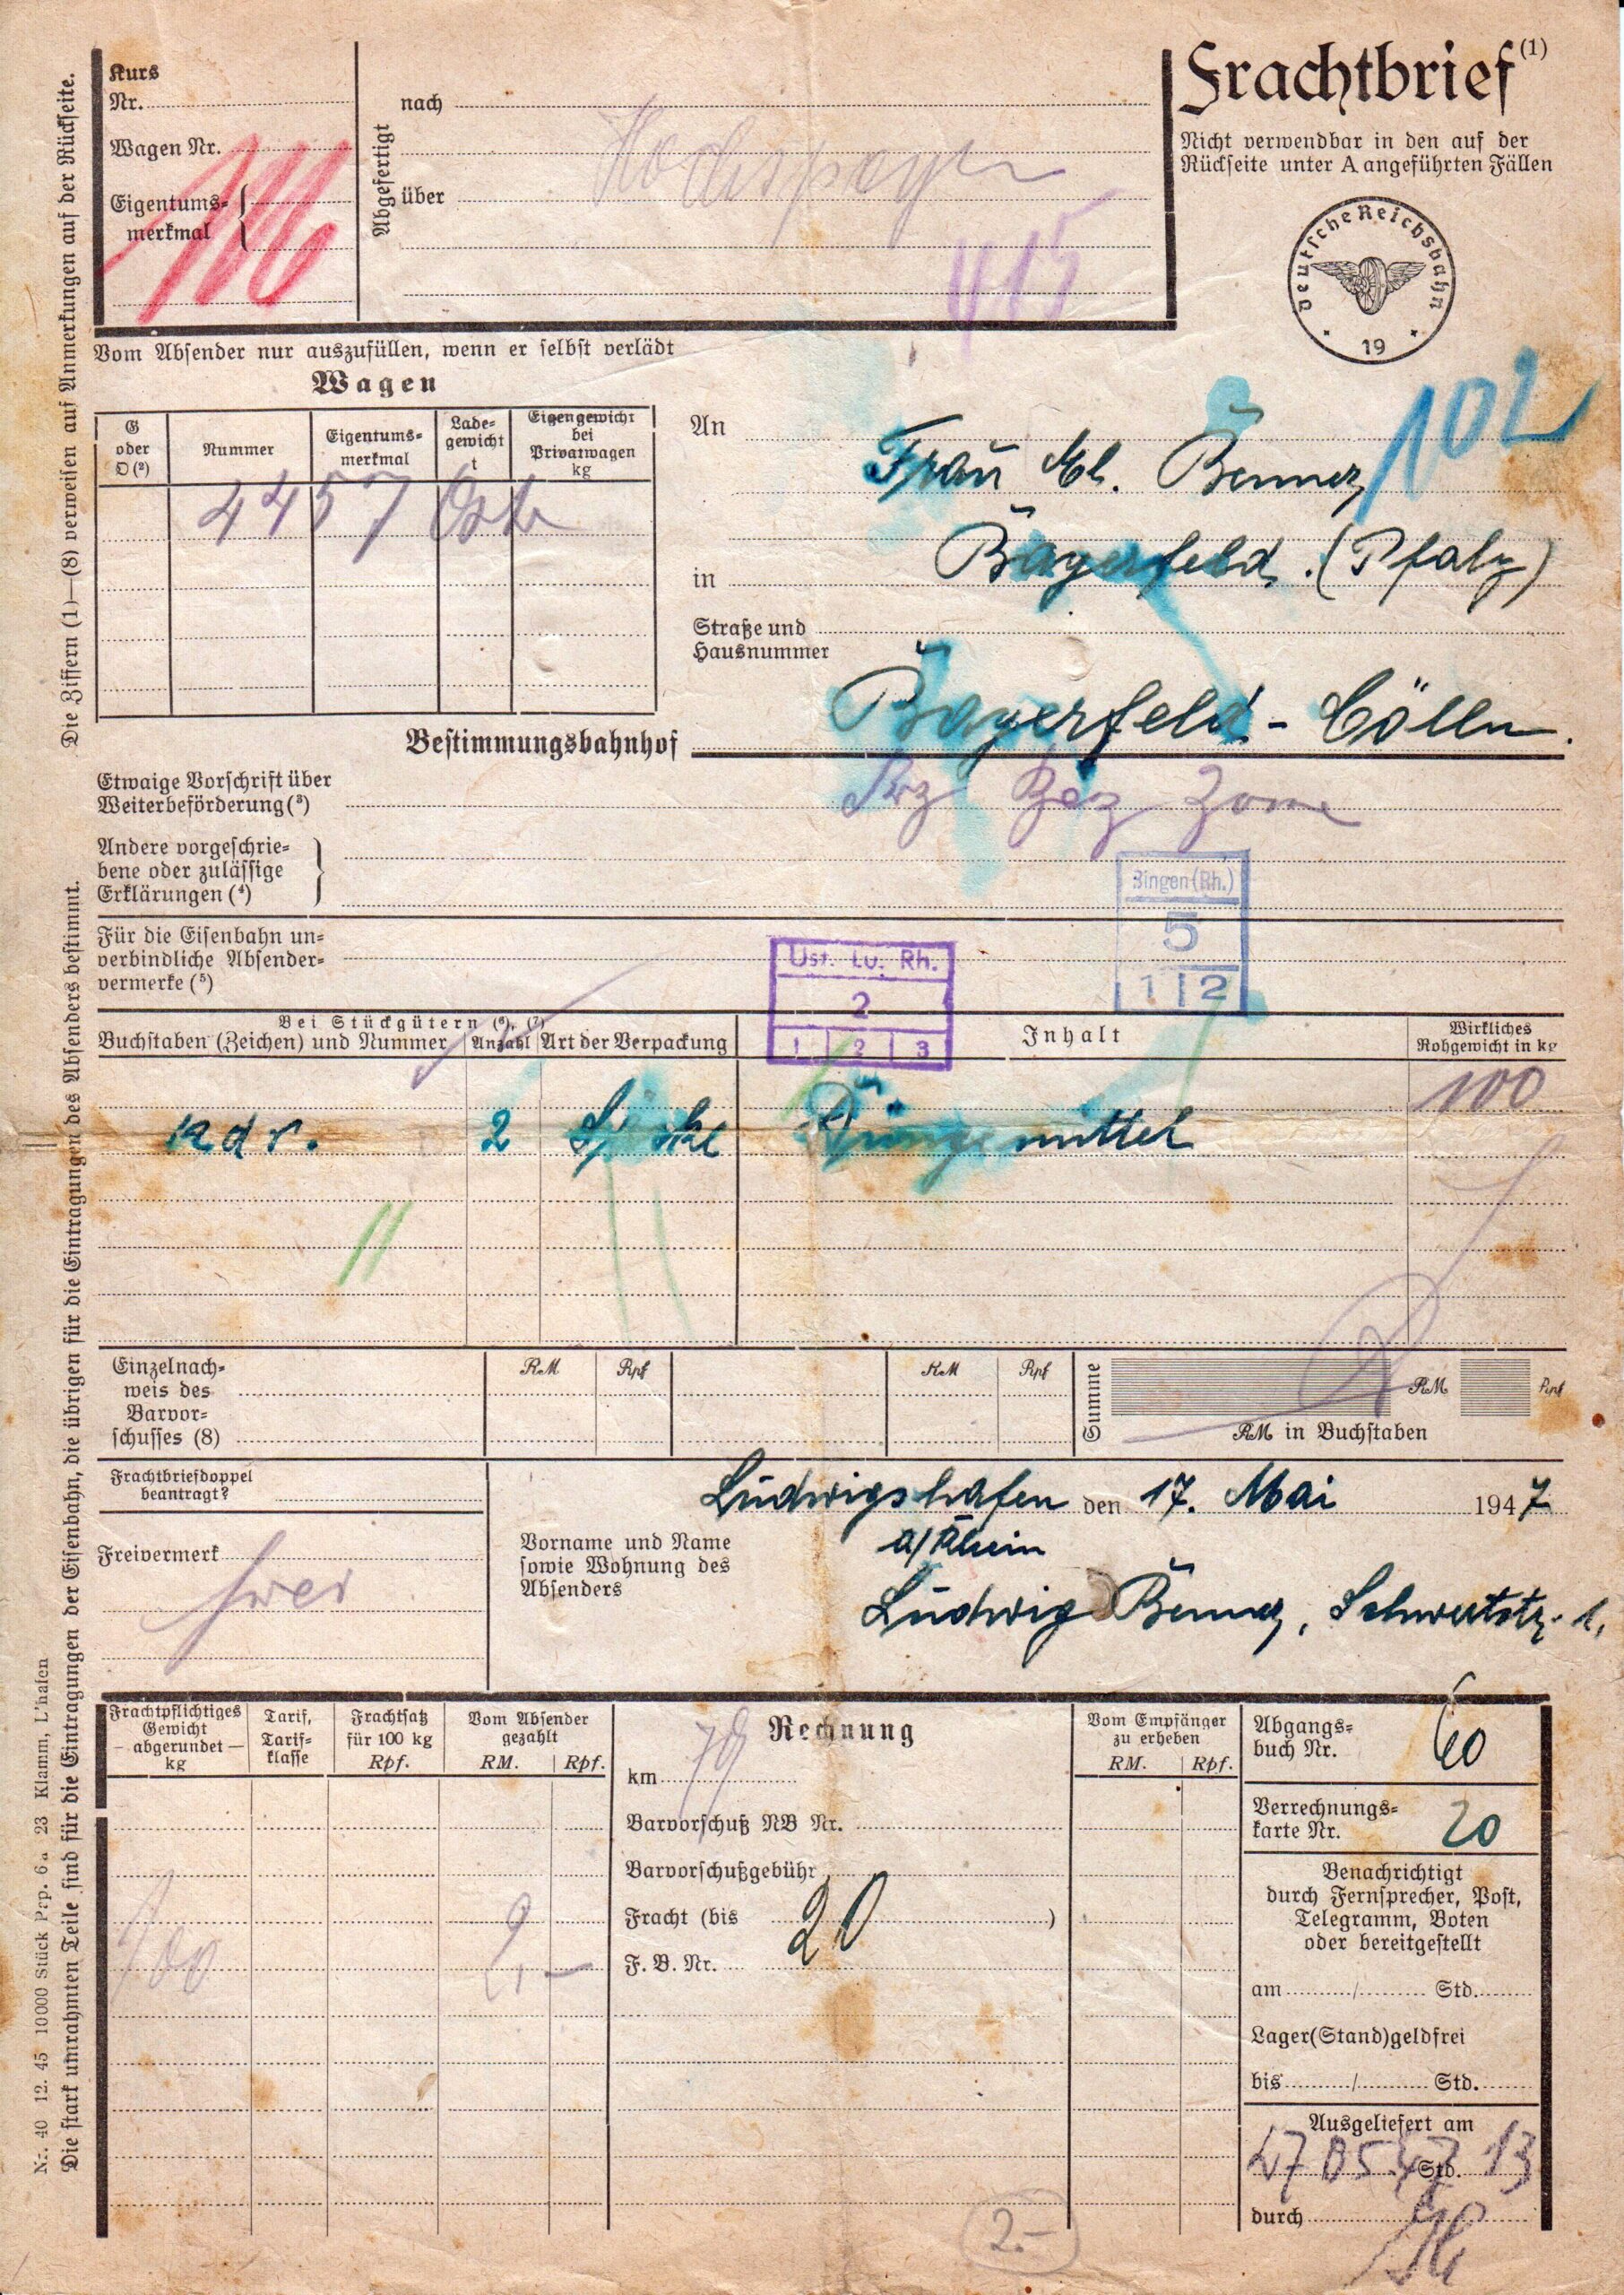 Frachtbrief (1)
Nicht verwendbar in den auf der
Rückseite unter A angeführten Fällen
Deutsche Reichsbahn
19
Kurs
Nr.
Wagen Nr.
Eigentums-
merkmal
Abgefertigt
nach
über
Hochspeyer
415
Die Ziffern (1)—(8) verweisen auf Anmerkungen auf der Rückseite.
Vom Absender nur auszufüllen, wenn er selbst verlädt
Wagen
G oder O (2)
Nummer
Eigentums-
merkmal
Lade-
gewicht
t
Eigengewicht
bei
Privatwagen
kg
4457
An
Frau Benner
102
in
Bayerfeld. (Pfalz)
Straße und
Hausnummer
Bestimmungsbahnhof
Bayerfeld - Cölln.
Etwaige Vorschrift über
Weiterbeförderung (3)
Frz Bez Zone
Andere vorgeschrie-
bene oder zulässige
Erklärungen (4)
Bingen (Rh.)
5
1 2
Für die Eisenbahn un-
verbindliche Absender-
vermerke (5)
Ust. Lu. Rh.
2
1 2 3
Bei Stückgütern (6), (7)
Buchstaben (Zeichen) und Nummer
Anzahl
Art der Verpackung
Inhalt
Wirkliches
Rohgewicht in kg
100
adr. 2 Säcke Düngemittel
Einzelnach-
weis des
Barvor-
schusses (8)
RM Rpf
RM Rpf
Summe
RM Rpf
RM in Buchstaben
Frachtbriefdoppel
beantragt?
Ludwigshafen den 17. Mai 1947
a/Rhein
Freivermerk
frei
Vorname und Name
sowie Wohnung des
Absenders
Ludwig Benner, Schwertstr. 1,
Die stark umrahmten Teile sind für die Eintragungen der Eisenbahn, die übrigen für die Eintragungen des Absenders bestimmt.
Nr. 40 12. 45 10000 Stück Pap. 6a 23 Klamm, L'hafen
Frachtpflichtiges
Gewicht
— abgerundet —
kg
Tarif,
Tarif-
klasse
Frachtsatz
für 100 kg
Rpf.
Vom Absender
gezahlt
RM. Rpf.
Rechnung
km
Barvorschuß NB Nr.
Barvorschußgebühr
Fracht (bis )
20
F. B. Nr.
100
2,-
Vom Empfänger
zu erheben
RM. Rpf.
Abgangs-
buch Nr.
60
Verrechnungs-
karte Nr.
20
Benachrichtigt
durch Fernsprecher, Post,
Telegramm, Boten
oder bereitgestellt
am / Std.
Lager(Stand)geldfrei
bis / Std.
Ausgeliefert am
Std. 13
durch
2.-